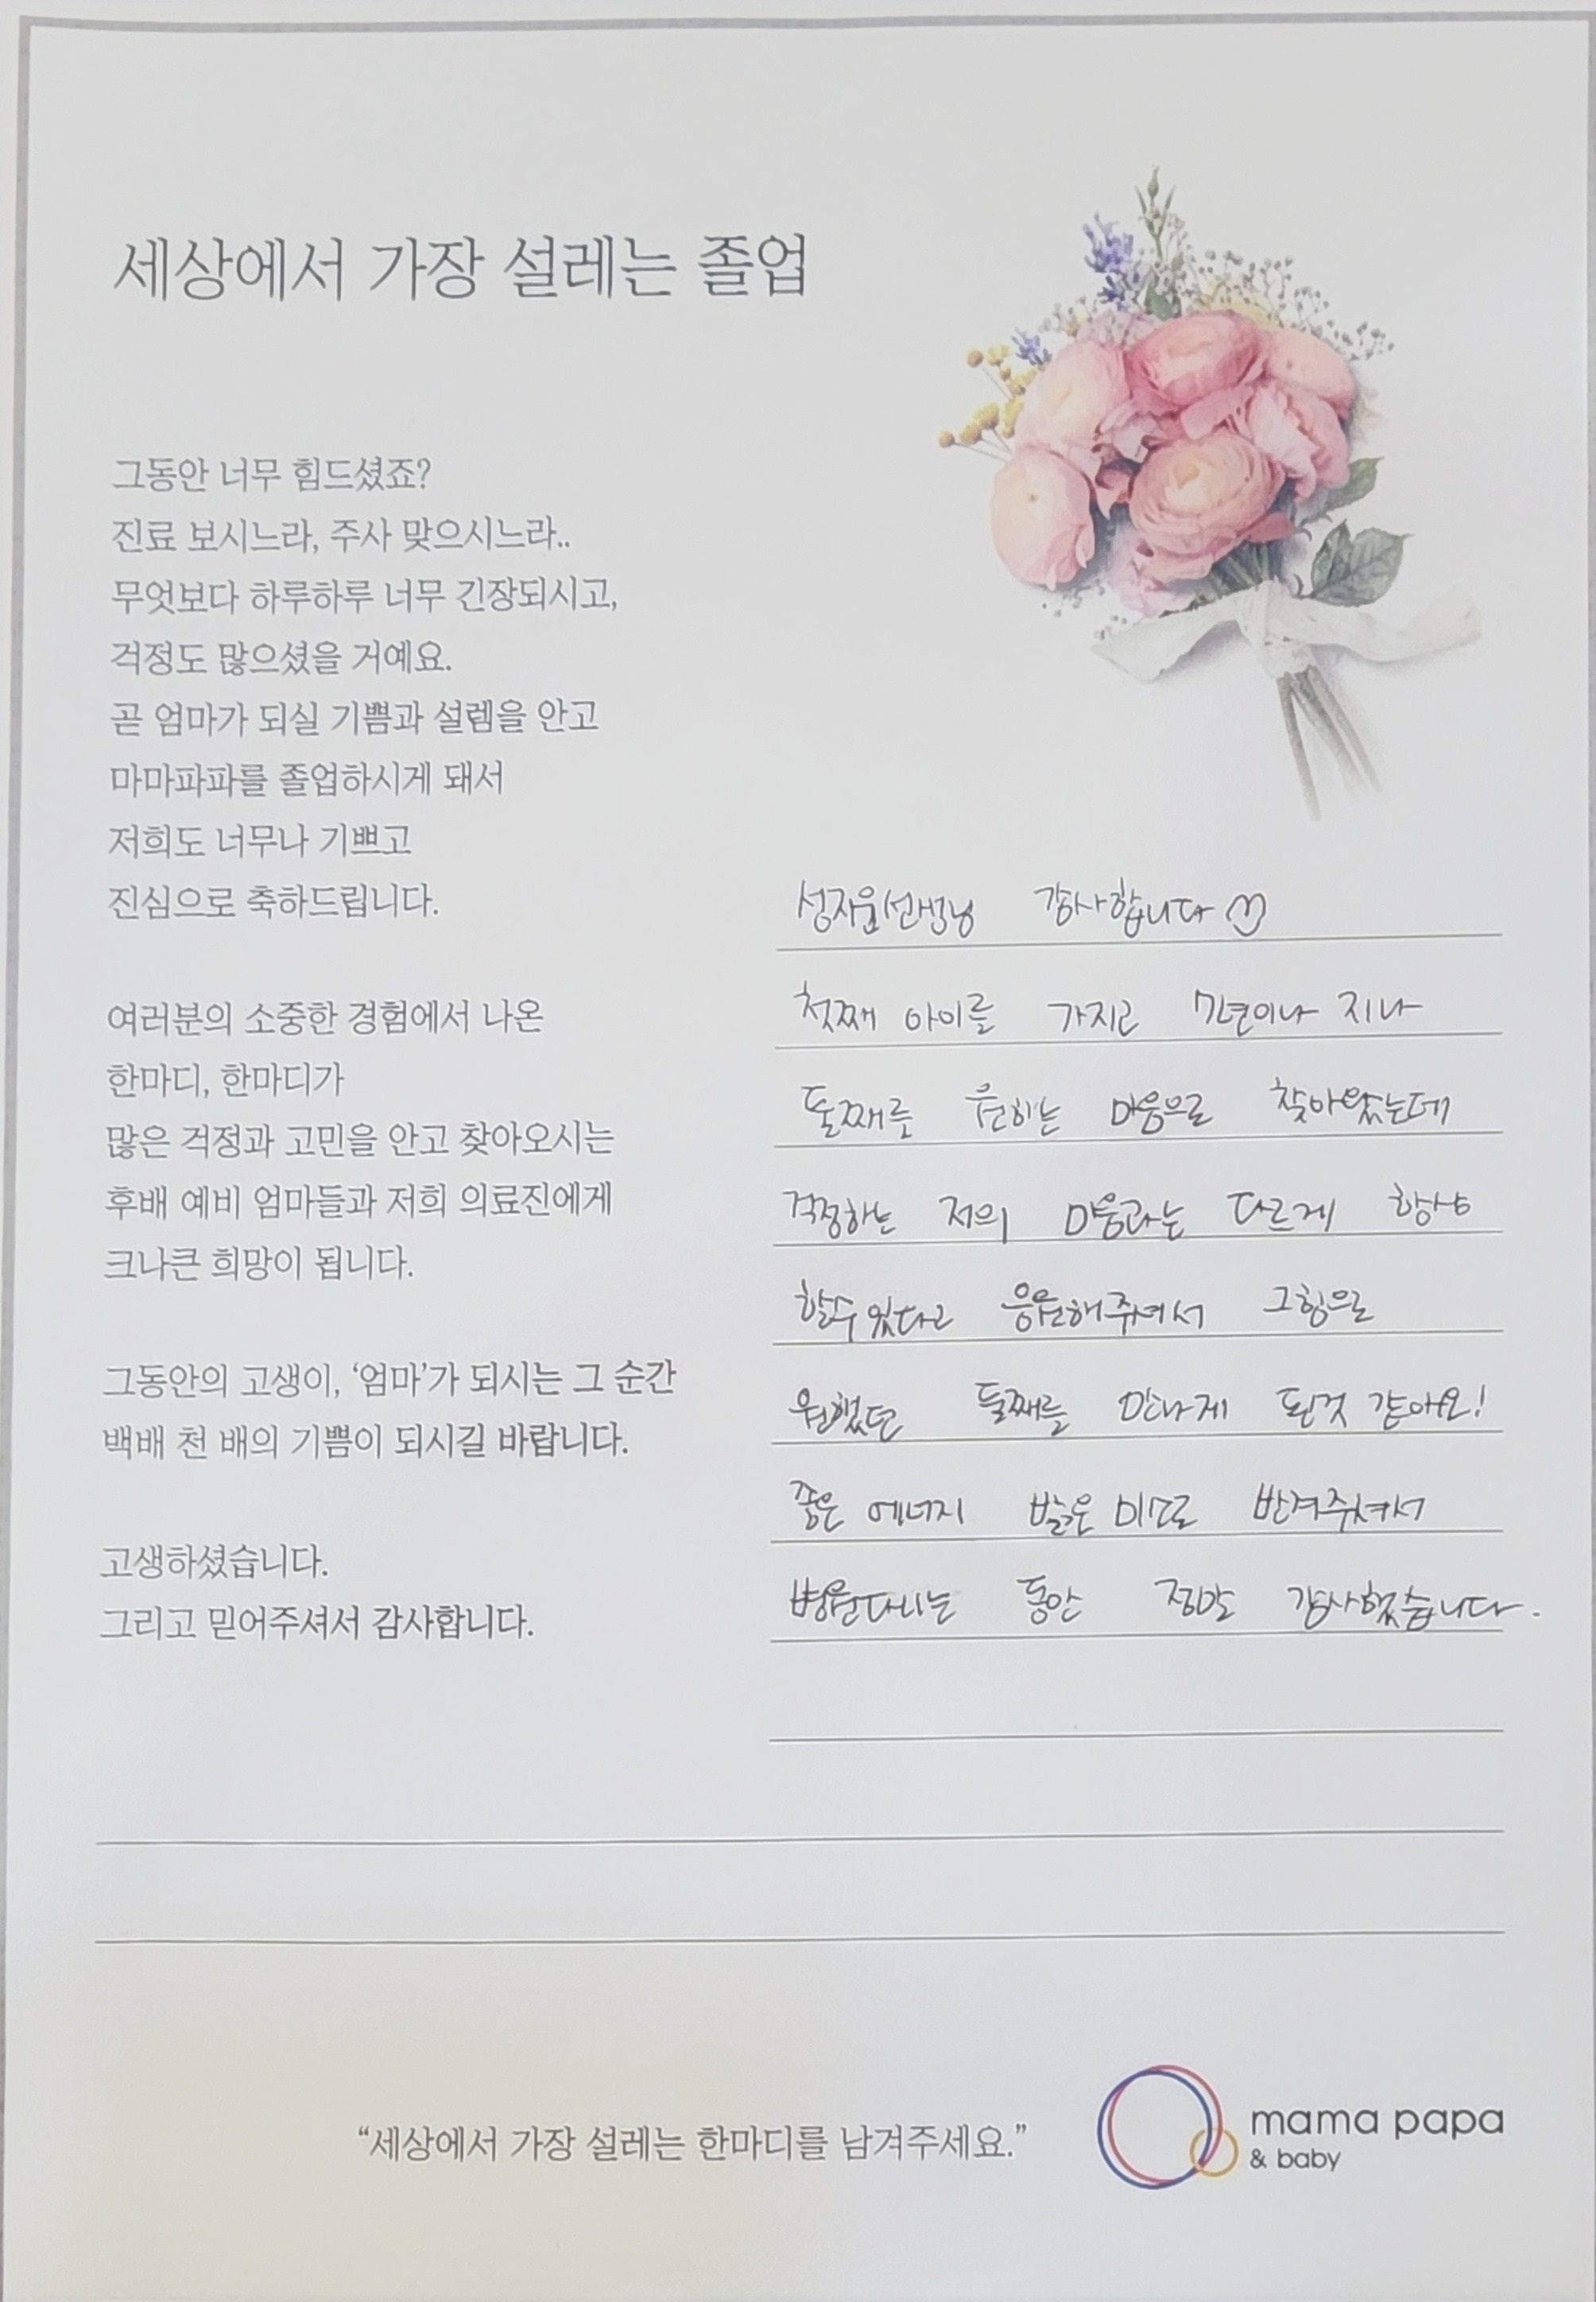 세상에서 가장 설레는 졸업
그동안 너무 힘드셨죠?
진료 보시느라, 주사 맞으시느라..
무엇보다 하루하루 너무 긴장되시고,
걱정도 많으셨을 거예요.
곧 엄마가 되실 기쁨과 설렘을 안고
마마파파를 졸업하시게 돼서
저희도 너무나 기쁘고
진심으로 축하드립니다.
여러분의 소중한 경험에서 나온
한마디, 한마디가
많은 걱정과 고민을 안고 찾아오시는
후배 예비 엄마들과 저희 의료진에게
크나큰 희망이 됩니다.
그동안의 고생이, ‘엄마’가 되시는 그 순간
백배 천 배의 기쁨이 되시길 바랍니다.
고생하셨습니다.
그리고 믿어주셔서 감사합니다.
성지윤선생님 감사합니다♡
첫째 아이를 가지고 7년이나 지나
둘째를 원하는 마음으로 찾아왔는데
걱정하는 저의 마음과는 다르게 항상
할수있다고 응원해주셔서 그힘으로
원했던 둘째를 만나게 된것 같아요!
좋은 에너지 밝은 미소로 반겨주셔서
병원다니는 동안 정말 감사했습니다.
“세상에서 가장 설레는 한마디를 남겨주세요.”
mama papa
& baby